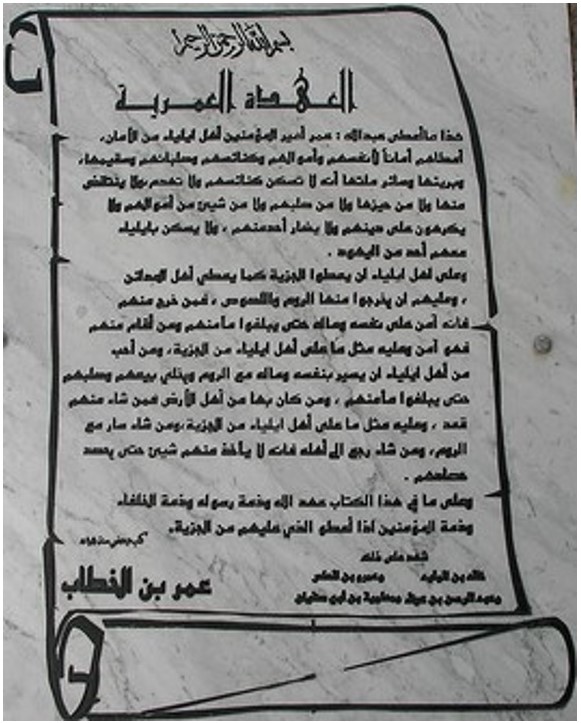 بسم الله الرحمن الرحيم
العهدة العمرية
هذا ما أعطى عبدالله : عمر أمير المؤمنين أهل ايلياء من الأمان،
أعطاهم أماناً لأنفسهم وأموالهم وكنائسهم وصلبانهم وسقيمها،
وبريئها وسائر ملتها أنه لا تسكن كنائسهم ولا تهدم،ولا ينتقض
منها ولا من حيزها ولا من صلبهم ولا من شيئ من أموالهم ولا
يكرهون على دينهم ولا يضار أحدمنهم ، ولا يسكن بايلياء
معهم أحد من اليهود .
وعلى اهل ايلياء ان يعطوا الجزية كما يعطي أهل المدائن
، وعليهم ان يخرجوا منها الروم واللصوص ، فمن خرج منهم
فانه آمن على نفسه وماله حتى يبلغوا مأمنهم ومن أقام منهم
فهو آمن وعليه مثل ما على أهل ايلياء من الجزية، ومن أحب
من أهل ايلياء ان يسير بنفسه وماله مع الروم ويخلي بيعهم وصلبهم
حتى يبلغوا مأمنهم ، ومن كان بها من أهل الأرض فمن شاء منهم
قعد ، وعليه مثل ما على أهل ايلياء من الجزية،ومن شاء سار مع
الروم، ومن شاء رجع الى أهله فانه لا يأخذ منهم شيئ حتى يحصد
حصادهم .
وعلى ما في هذا الكتاب عهد الله وذمة رسوله وذمة الخلفاء
وذمة المؤمنين اذا أعطو الذي عليهم من الجزية.
شهد على ذلك
خالد بن الوليد وعمرو بن العاص
وعبد الرحمن بن عوف ومعاوية بن أبي سفيان
عمر بن الخطاب